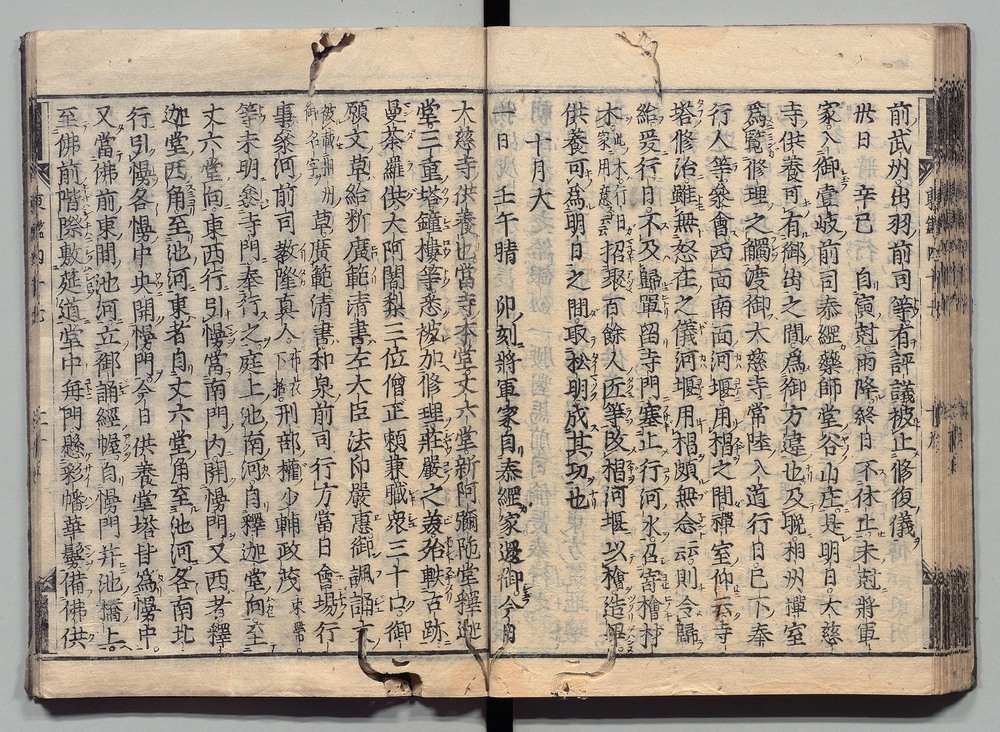 前武州出羽前司等有評議被止修復儀
卅日 辛巳 自寅尅雨降終日不休止未尅將軍
家入御壹岐前司泰綱藥師堂谷山庄是明日大慈
寺供養可有御出之間爲御方違也及晩相州禪室
爲覽修理之體渡御大慈寺常陸入道行日已下奉
行人等參會西面南面河堰用榻之間禪室仰云寺
塔修治雖無怒在之儀河堰用榻頗無念云云則令歸
給爰行日不及歸宅留寺門塞止行河水召寄檜材
木此木行日家用意云云招聚百餘人匠等改榻河堰以檜造畢
供養可爲明日之間取松明成其功也
十月大
一日 壬午晴 卯刻將軍家自泰綱家還御今日
大慈寺供養也當寺本堂丈六堂新阿彌陀堂釋迦
堂三重塔鐘樓等悉被加修理莊嚴之義殆軼古跡
曼荼羅供大阿闍梨三位僧正頼兼職衆三十口御
願文草給料廣範清書左大臣法印嚴惠御諷誦文
被載相州御名字草廣範清書和泉前司行方當日會場行
事參河前司教隆真人布衣下括刑部權少輔政茂束帶
等未明參寺門奉行之庭上池南河自釋迦堂向至
丈六堂向東西行引慢當南門内開慢門又西者釋
迦堂西角至池河東者自丈六堂角至池河各南北
行引慢各慢中央開慢門今日供養堂塔皆爲慢中
又當佛前東間池河立御誦經幄自慢門并池橋上
至佛前階際敷莚道堂中毎門懸彩幡華鬘備佛供